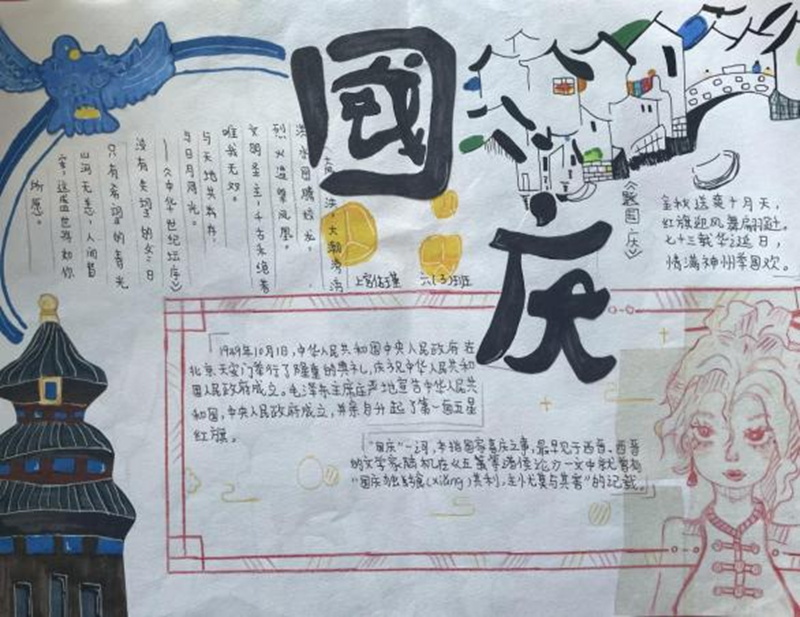 國庆
《题国庆》
金秋送爽十月天，
红旗迎风舞翩跹。
七十三载华诞日，
情满神州举国欢。
大潮滂湃
洪水图腾蛟龙，
烈火涅槃凤凰。
文明圣土，千古未绝者
唯我无双。
与天地共存，
与日月同光。
——《中华世纪坛序》
只有希望的春光
山河无恙，人间皆
安，这盛世将如你
所愿。
六(3)班
1949年10月1日，中华人民共和国中央人民政府在
北京天安门举行了隆重的典礼，庆祝中华人民共和
国人民政府成立。毛泽东主席庄严地宣告中华人民共
和国，中央人民政府成立，并亲自升起了第一面五星
红旗。
"国庆"一词，本指国家喜庆之事，最早见于西晋。西晋
的文学家陆机在《五等诸侯论》一文中就曾有
"国庆独飨(xiǎng)其利，主忧莫与其害"的记载。